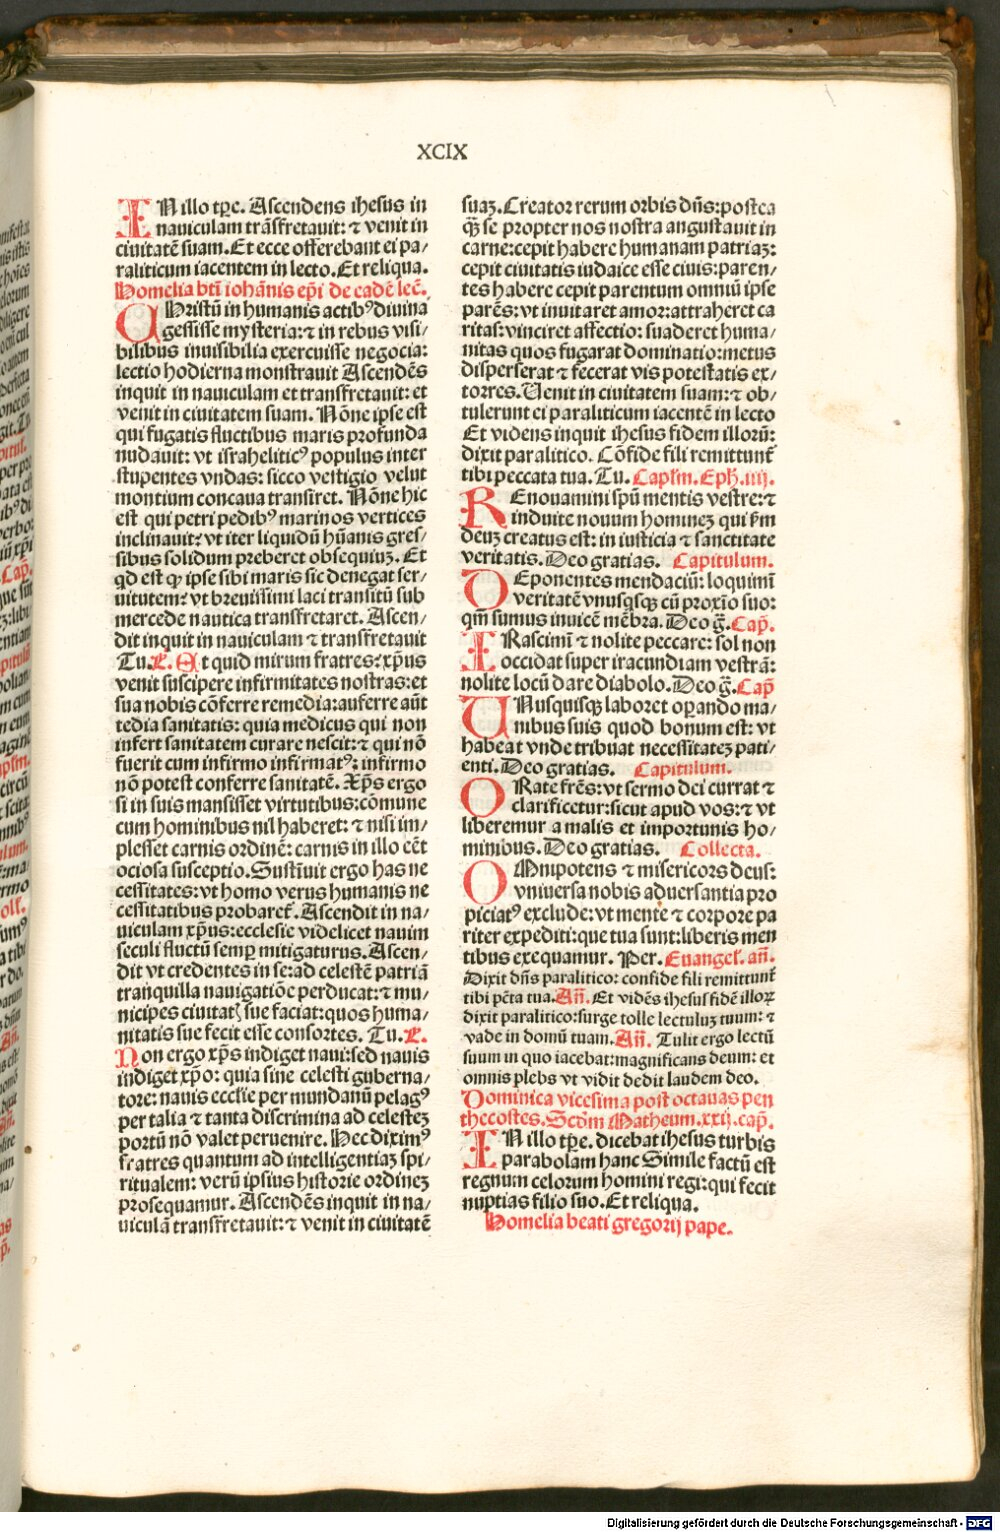 XCIX
IN illo tꝑe. Ascendens ihesus in
nauiculam trãsfretauit: ⁊ venit in
ciuitatẽ suam. Et ecce offerebant ei pa/
raliticum iacentem in lecto. Et reliqua.
Homelia btĩ iohãnis ep̃i de eadẽ lec̃.
CHristũ in humanis actibꝰ diuina
gessisse mysteria: ⁊ in rebus visi/
bilibus inuisibilia exercuisse negocia:
lectio hodierna monstrauit Ascendẽs
inquit in nauiculam et transfretauit: et
venit in ciuitatem suam. Nõne ipse est
qui fugatis fluctibus maris profunda
nudauit: vt israheliticꝰ populus inter
stupentes vndas: sicco vestigio velut
montium concaua transiret. Nõne hic
est qui petri pedibꝰ marinos vertices
inclinauit? vt iter liquidũ hũanis gres/
sibus solidum preberet obsequiuꝫ. Et
qd est ꝙ ipse sibi maris sic denegat ser/
uitutem? vt breuissimi laci transitũ sub
mercede nautica transfretaret. Ascen/
dit inquit in nauiculam ⁊ transfretauit
Tu. R. Et quid mirum fratres? xp̃us
venit suscipere infirmitates nostras: et
sua nobis cõferre remedia: auferre aũt
tedia sanitatis: quia medicus qui non
infert sanitatem curare nescit: ⁊ qui nõ
fuerit cum infirmo infirmatꝰ: infirmo
nõ potest conferre sanitatẽ. Xp̃s ergo
si in suis mansisset virtutibus: cõmune
cum hominibus nil haberet: ⁊ nisi im/
plesset carnis ordinẽ: carnis in illo eẽt
ociosa susceptio. Sustinuit ergo has ne
cessitates: vt homo verus humanis ne
cessitatibus probaret᷑. Ascendit in na/
uiculam xp̃us: ecclesie videlicet nauim
seculi fluctũ semꝑ mitigaturus. Ascen/
dit vt credentes in se: ad celestẽ patriã
tranquilla nauigatiõe perducat: ⁊ mu/
nicipes ciuitatꝭ sue faciat: quos huma/
nitatis sue fecit esse consortes. Tu. R.
Non ergo xp̃s indiget naui: sed nauis
indiget xp̃o: quia sine celesti guberna/
tore: nauis ecclie per mundanũ pelagꝰ
per talia ⁊ tanta discrimina ad celesteꝫ
portũ nõ valet peruenire. Hec diximꝰ
fratres quantum ad intelligentiaꝫ spi/
ritualem: verũ ipsius historie ordineꝫ
prosequamur. Ascendẽs inquit in na/
uiculã transfretauit: ⁊ venit in ciuitatẽ
suaꝫ. Creator rerum orbis dñs: postea
qꝫ se propter nos nostra angustauit in
carne: cepit habere humanam patriaꝫ:
cepit ciuitatis iudaice esse ciuis: paren/
tes habere cepit parentum omniũ ipse
parẽs: vt inuitaret amor: attraheret ca
ritas: vinciret affectio: suaderet huma/
nitas quos fugarat dominatio: metus
disperserat ⁊ fecerat vis potestatis ex/
torres. Uenit in ciuitatem suam: ⁊ ob/
tulerunt ei paraliticum iacentẽ in lecto
Et videns inquit ihesus fidem illorũ:
dixit paralitico. Cõfide fili remittunt᷑
tibi peccata tua. Tu. Capl̃m. Eph̃. iiij.
REnouamini spũ mentis vestre: ⁊
induite nouum homineꝫ qui ẜm
deuꝫ creatus est: in iusticia ⁊ sanctitate
veritatis. Deo gratias. Capitulum.
DEponentes mendaciũ: loquimĩ
veritatẽ vnusqsqꝫ cũ proxĩo suo:
qm̃ sumus inuicẽ mẽbra. Deo g̃. Cap̃.
IRascimĩ ⁊ nolite peccare: sol non
occidat super iracundiam vestrã:
nolite locũ dare diabolo. Deo g̃. Cap̃
UNusquisqꝫ laboret oꝑando ma/
nibus suis quod bonum est: vt
habeat vnde tribuat necessitateꝫ pati/
enti. Deo gratias. Capitulum.
ORate fr̃es: vt sermo dei currat ⁊
clarificetur: sicut apud vos: ⁊ vt
liberemur a malis et importunis ho/
minibus. Deo gratias. Collecta.
OMnipotens ⁊ misericors deus:
vniuersa nobis aduersantia pro
piciatꝰ exclude: vt mente ⁊ corpore pa
riter expediti: que tua sunt: liberis men
tibus exequamur. Per. Euangel̃. añ.
Dixit dñs paralitico: confide fili remittunt᷑
tibi pc̃ta tua. Añ. Et vidẽs ihesus fidẽ illoꝝ
dixit paralitico: surge tolle lectuluꝫ tuum: ⁊
vade in domũ tuam. Añ. Tulit ergo lectũ
suum in quo iacebat: magnificans deum: et
omnis plebs vt vidit dedit laudem deo.
Dominica vicesima post octauas pen
thecostes. Scd̃m Matheum. xxij. cap̃.
IN illo tꝑe. dicebat ihesus turbis
parabolam hanc Simile factũ est
regnum celorum homini regi: qui fecit
nuptias filio suo. Et reliqua.
Homelia beati gregorij pape.
Digitalisierung gefördert durch die Deutsche Forschungsgemeinschaft - DFG